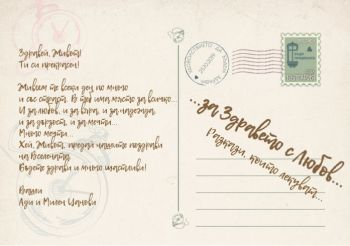 Здравей, Живот!
Ти си прекрасен!
Живеем те всеки ден по много
и със страст. В теб има място за всичко...
И за любов, и за вяра, и за надежда,
и за дързост, и за мечти...
Много мечти...
Хей, Живот, предай нашите поздрави
на Вселената.
Бъдете здрави и много щастливи!
Ваши
Ади и Милен Цанови
...за Здравето с Любов...
Разкази, които лекуват...